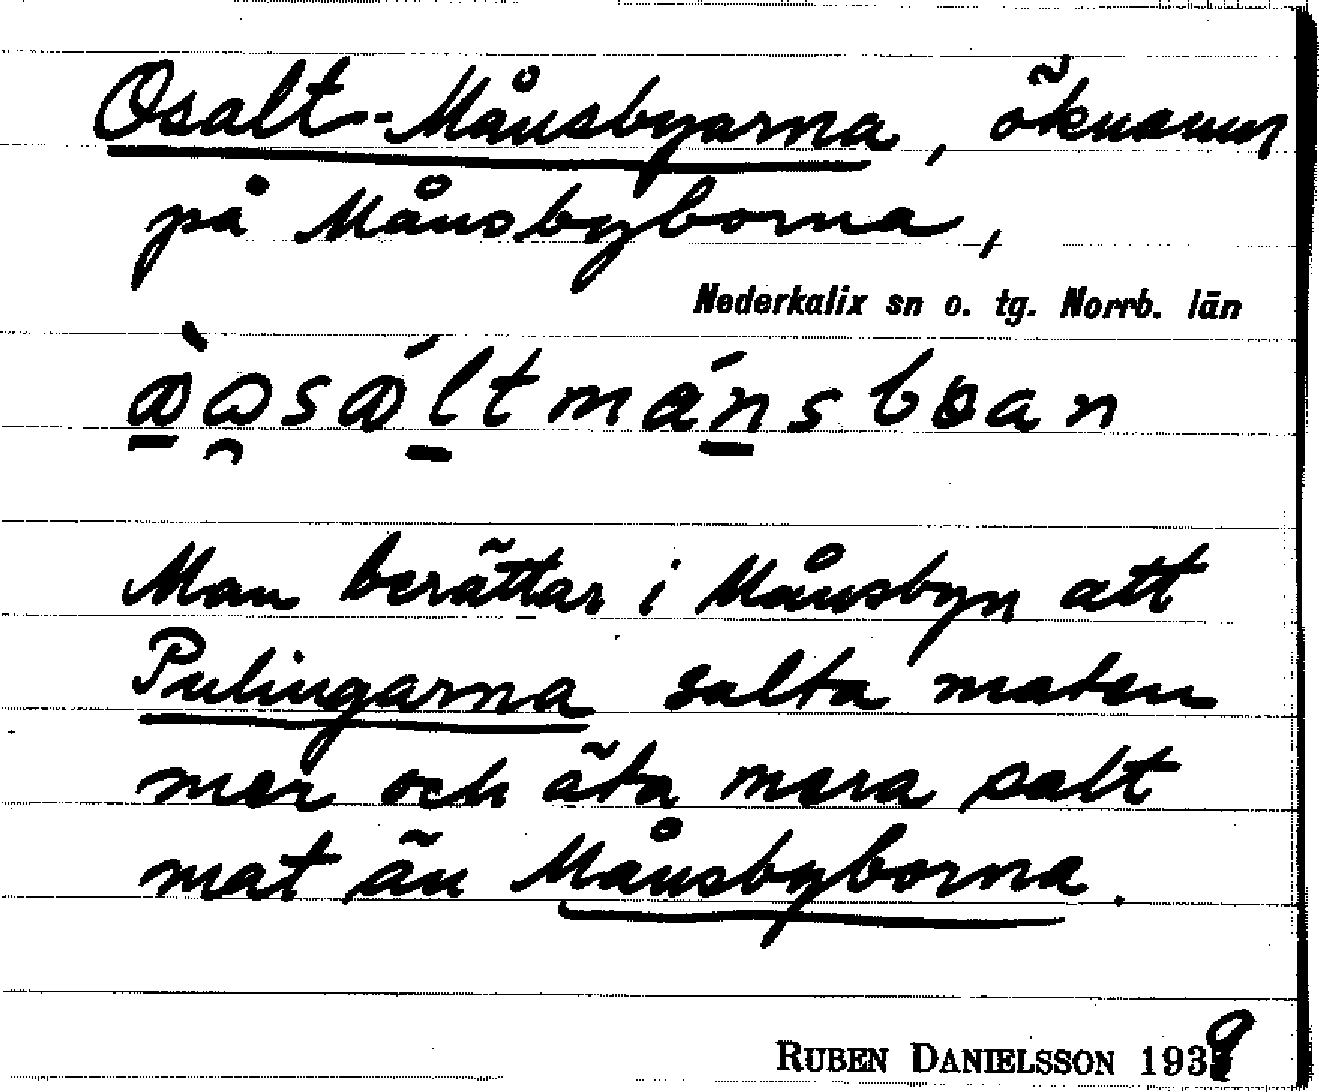 Osalt-Månsbyarna, öknamn
på Månsbyborna,
Nederkalix sn o. tg. Norrb. län
Man berättar i Månsbyn att
Pulingarna salta maten
mer och äta mera salt
mat än Månsbyborna.
RUBEN DANIELSSON 1939